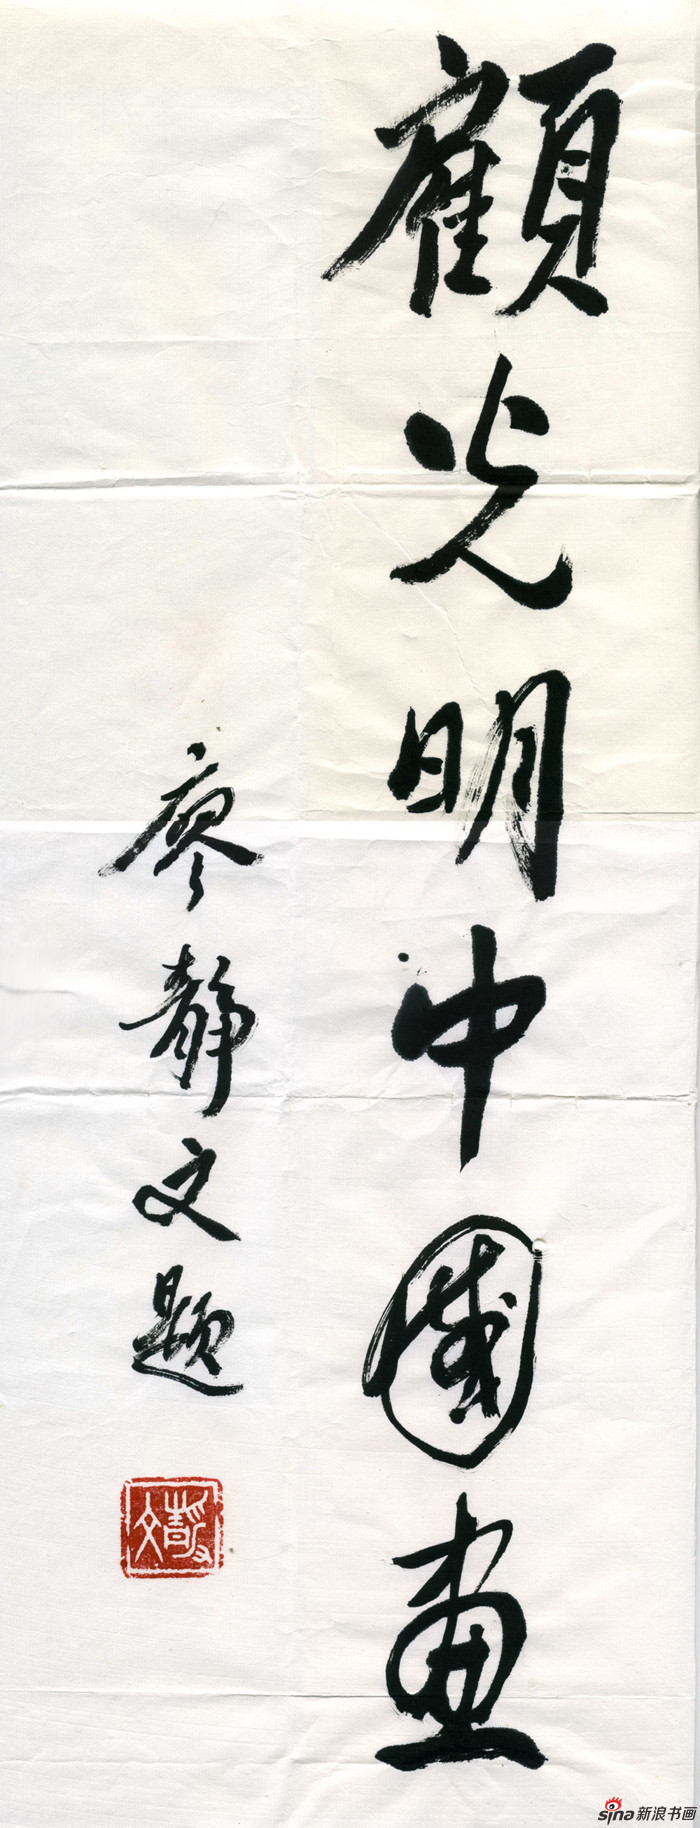 顧光明中國畫
廖靜文題
靜文
sina新浪书画